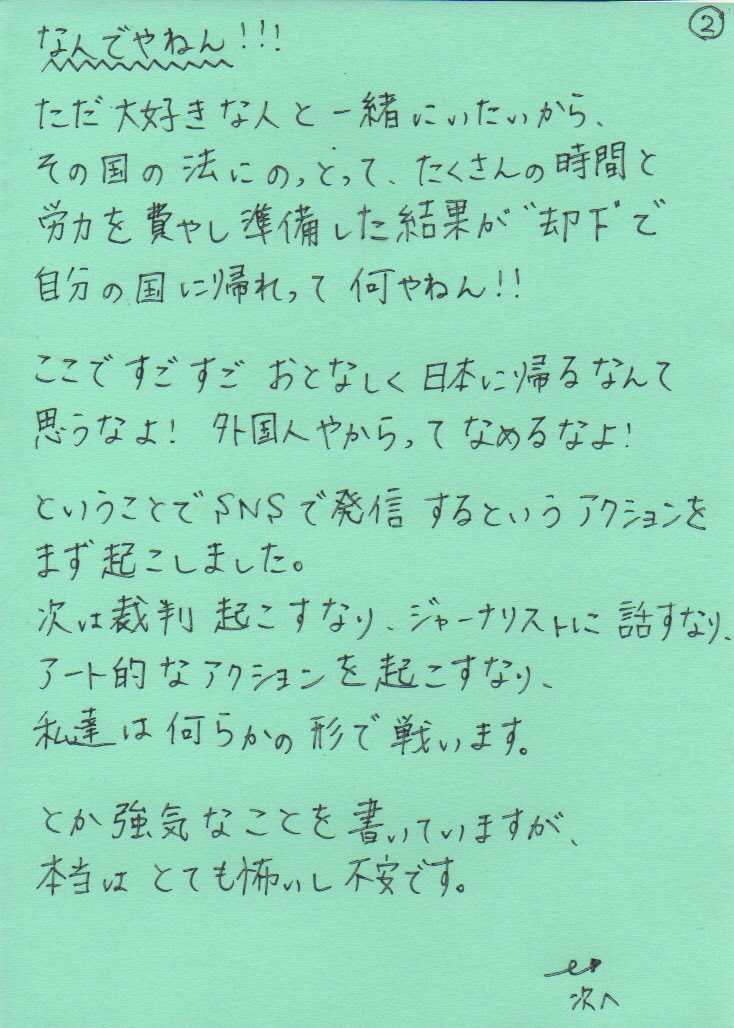 ②
なんでやねん!!!
ただ大好きな人と一緒にいたいから、
その国の法にのっとって、たくさんの時間と
労力を費やし準備した結果が"却下"で
自分の国に帰れって何やねん!!
ここですごすごおとなしく日本に帰るなんて
思うなよ! 外国人やからってなめるなよ!
ということでSNSで発信するというアクションを
まず起こしました。
次は裁判起こすなり、ジャーナリストに話すなり、
アート的なアクションを起こすなり、
私達は何らかの形で戦います。
とか強気なことを書いていますが、
本当はとても怖いし不安です。
次へ